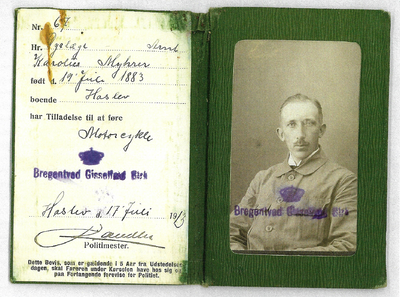 Nr. 67
Hr.
Karolius Myhrer
født d. 19 Juli 1883
boende Haslev
har Tilladelse til at føre
Motorcykle
Bregentved Gisselfeld Birk
Haslev d. 17 Juli 191
Politimester.
Dette Bevis, som er gældende i 5 Aar fra Udstedelses-
dagen, skal Føreren under Kørselen have hos sig og
paa Forlangende forevise for Politiet.
Bregentved Gisselfeld Birk